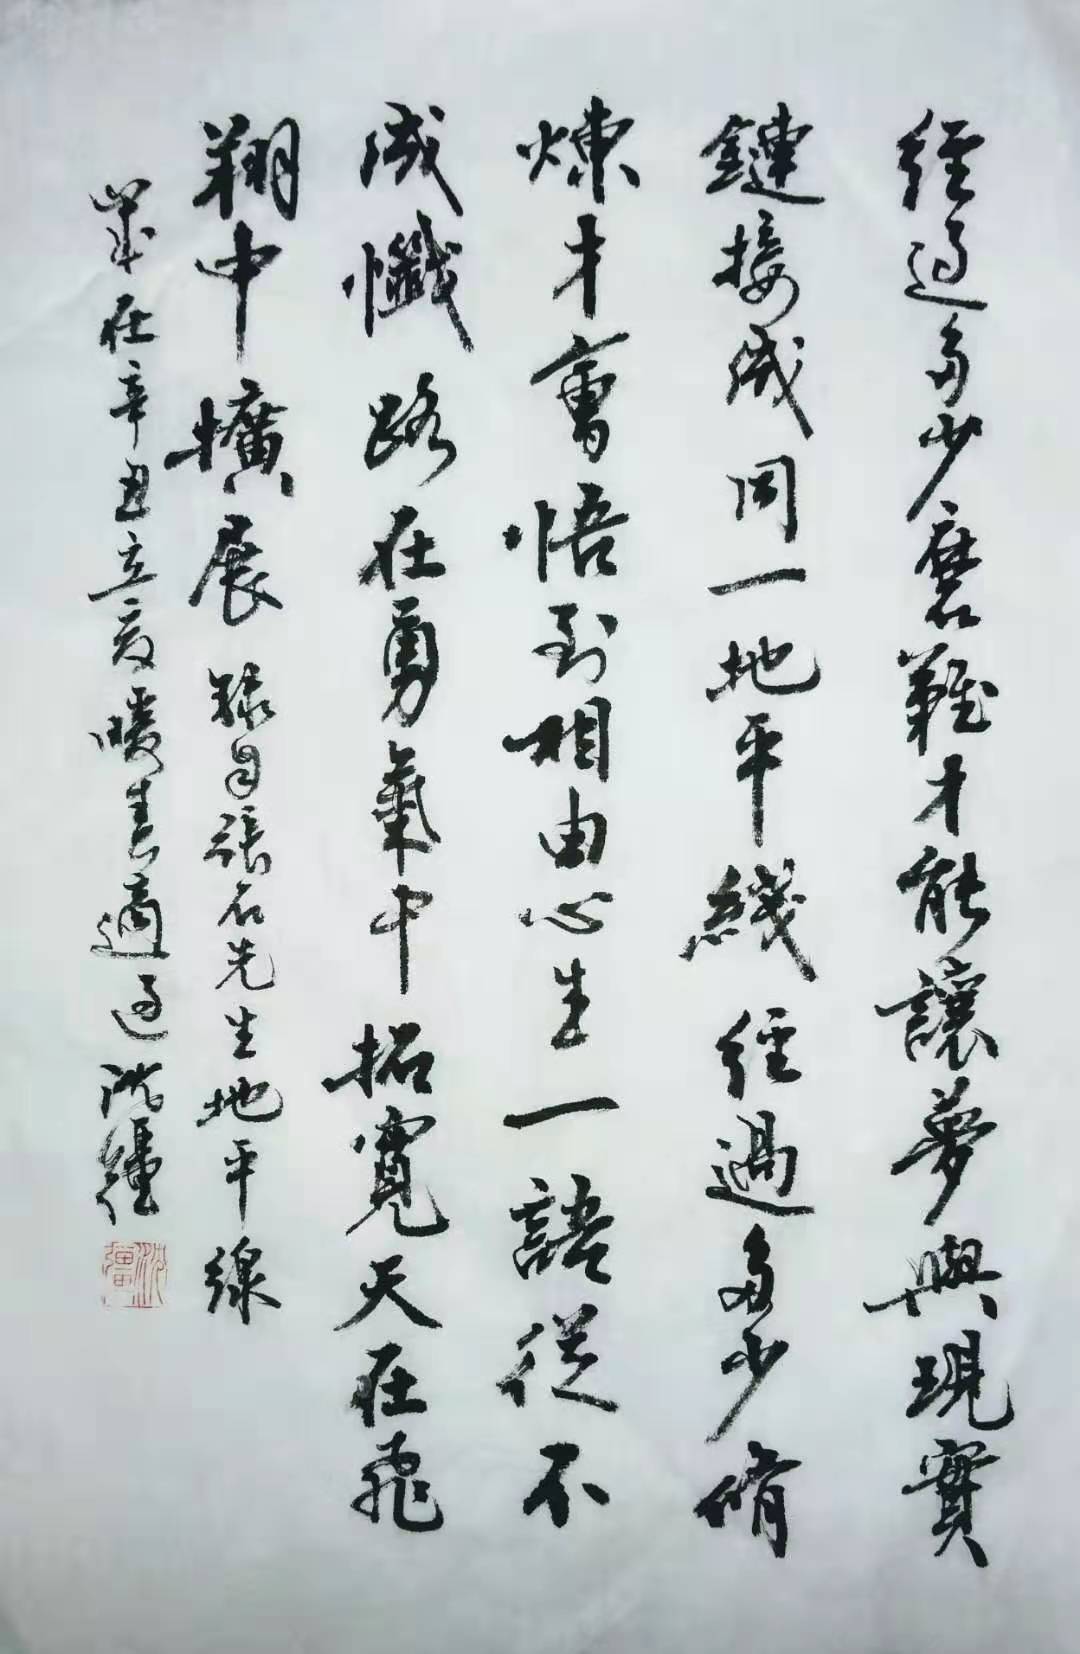 經過多少磨難才能讓夢與現實
鏈接成同一地平綫經過多少脩
煉才會悟到相由心生一語從不
成懺路在勇氣中拓寬天在飛
翔中擴展 錄自張石先生地平線
歲在辛丑立夏